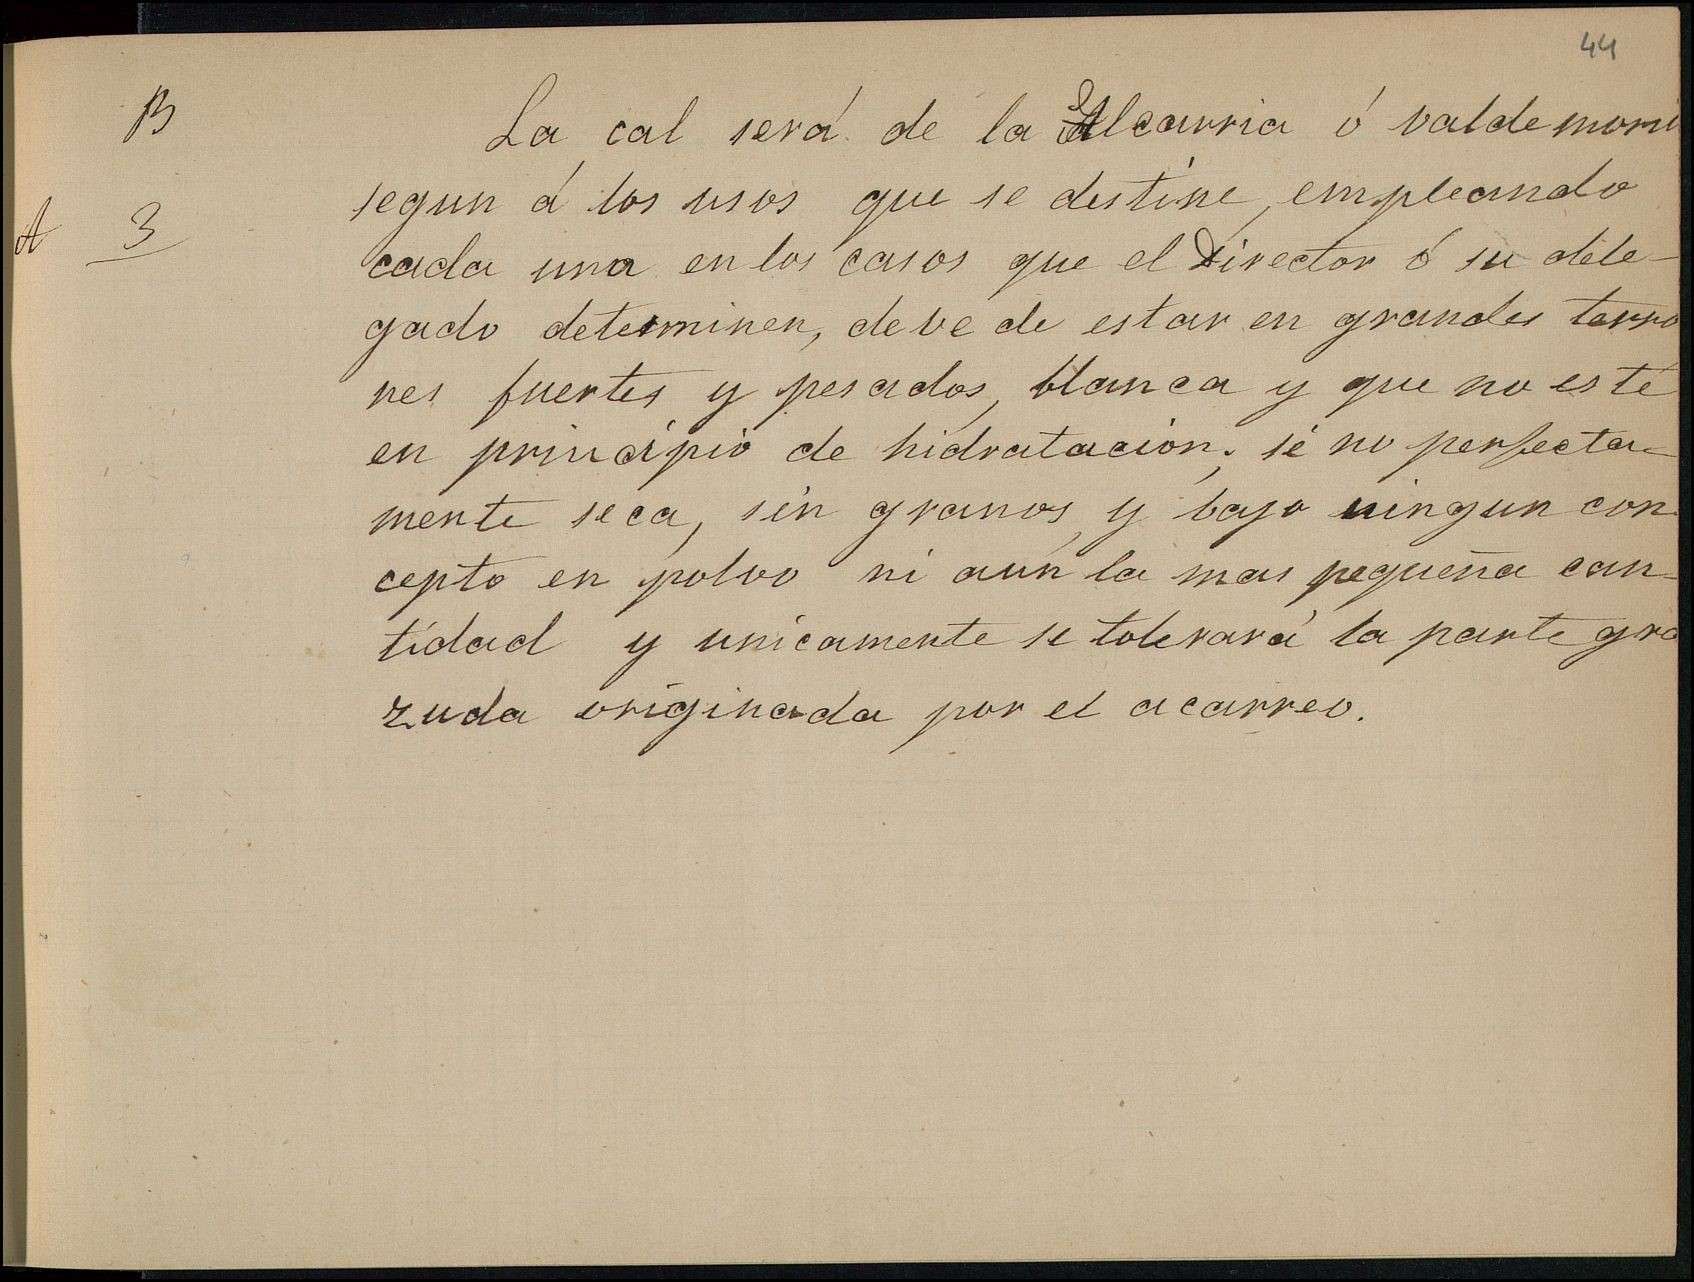 44
B
La cal será de la Alcarria ó valdemori
segun á los usos que se destine, empleando
A 3
cada una en los casos que el Director ó su dele-
gado determinen, deve de estar en grandes terro
nes fuertes y pesados, blanca y que no esté
en principio de hidratación; si no perfecta-
mente seca, sin granos, y bajo ningun con-
cepto en polvo ni aún la mas pequeña can-
tidad y unicamente se tolerará la parte gra
zuda originada por el acarreo.